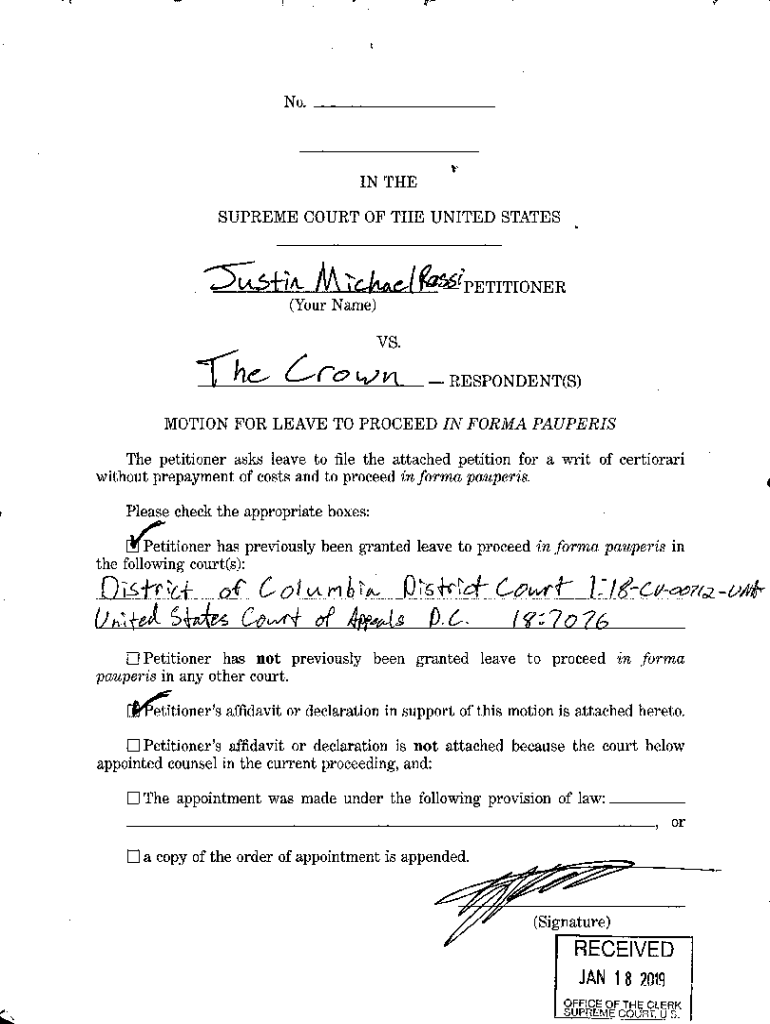 No.
IN THE
SUPREME COURT OF THE UNITED STATES
Justin Michael Rossi PETITIONER
(Your Name)
VS.
The Crown — RESPONDENT(S)
MOTION FOR LEAVE TO PROCEED IN FORMA PAUPERIS
The petitioner asks leave to file the attached petition for a writ of certiorari
without prepayment of costs and to proceed in forma pauperis.
Please check the appropriate boxes:
Petitioner has previously been granted leave to proceed in forma pauperis in
the following court(s):
District of Columbia District Court 1:18-CV-00712-UNA
United States Court of Appeals D.C. 18-7076
Petitioner has not previously been granted leave to proceed in forma
pauperis in any other court.
Petitioner's affidavit or declaration in support of this motion is attached hereto.
Petitioner's affidavit or declaration is not attached because the court below
appointed counsel in the current proceeding, and:
The appointment was made under the following provision of law:
, or
a copy of the order of appointment is appended.
(Signature)
RECEIVED
JAN 18 2019
OFFICE OF THE CLERK
SUPREME COURT, U.S.